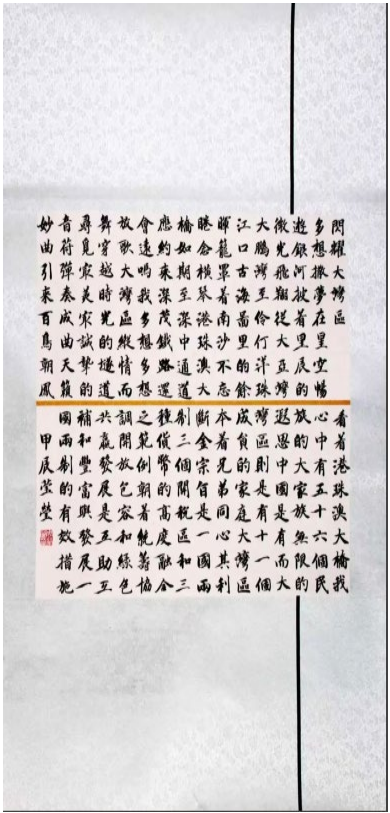 閃耀大灣區
多想撒夢在星空暢
遊銀河披着星辰的
微光飛翔從大亞灣
大鵬灣至伶仃洋珠
江口古海畫里的餘
暉籠罩着南沙不忘
睠念橫琴港珠澳大
橋如期至深中通道
應約來深茂鐵路還
會遠嗎我多想多想
放歌大灣區縱情而
舞穿越時光的隧道
尋覓冣美冣誠摯的
音符彈奏成曲天籟
妙曲引來百鳥朝鳳
看着港珠澳大橋我
心中有五十六個民
族的大家族無限的
遐思中國是有而大
灣區則是有十一個
成員的家庭大灣區
本着兄弟同心其利
斷金宗旨是一國兩
制三個關税區和三
種貨幣的高度融合
之範例朝着統籌協
調開放包容和綠色
共贏發展是互助互
補和豐富與發展一
國兩制的有效措施
甲辰瑩瑩